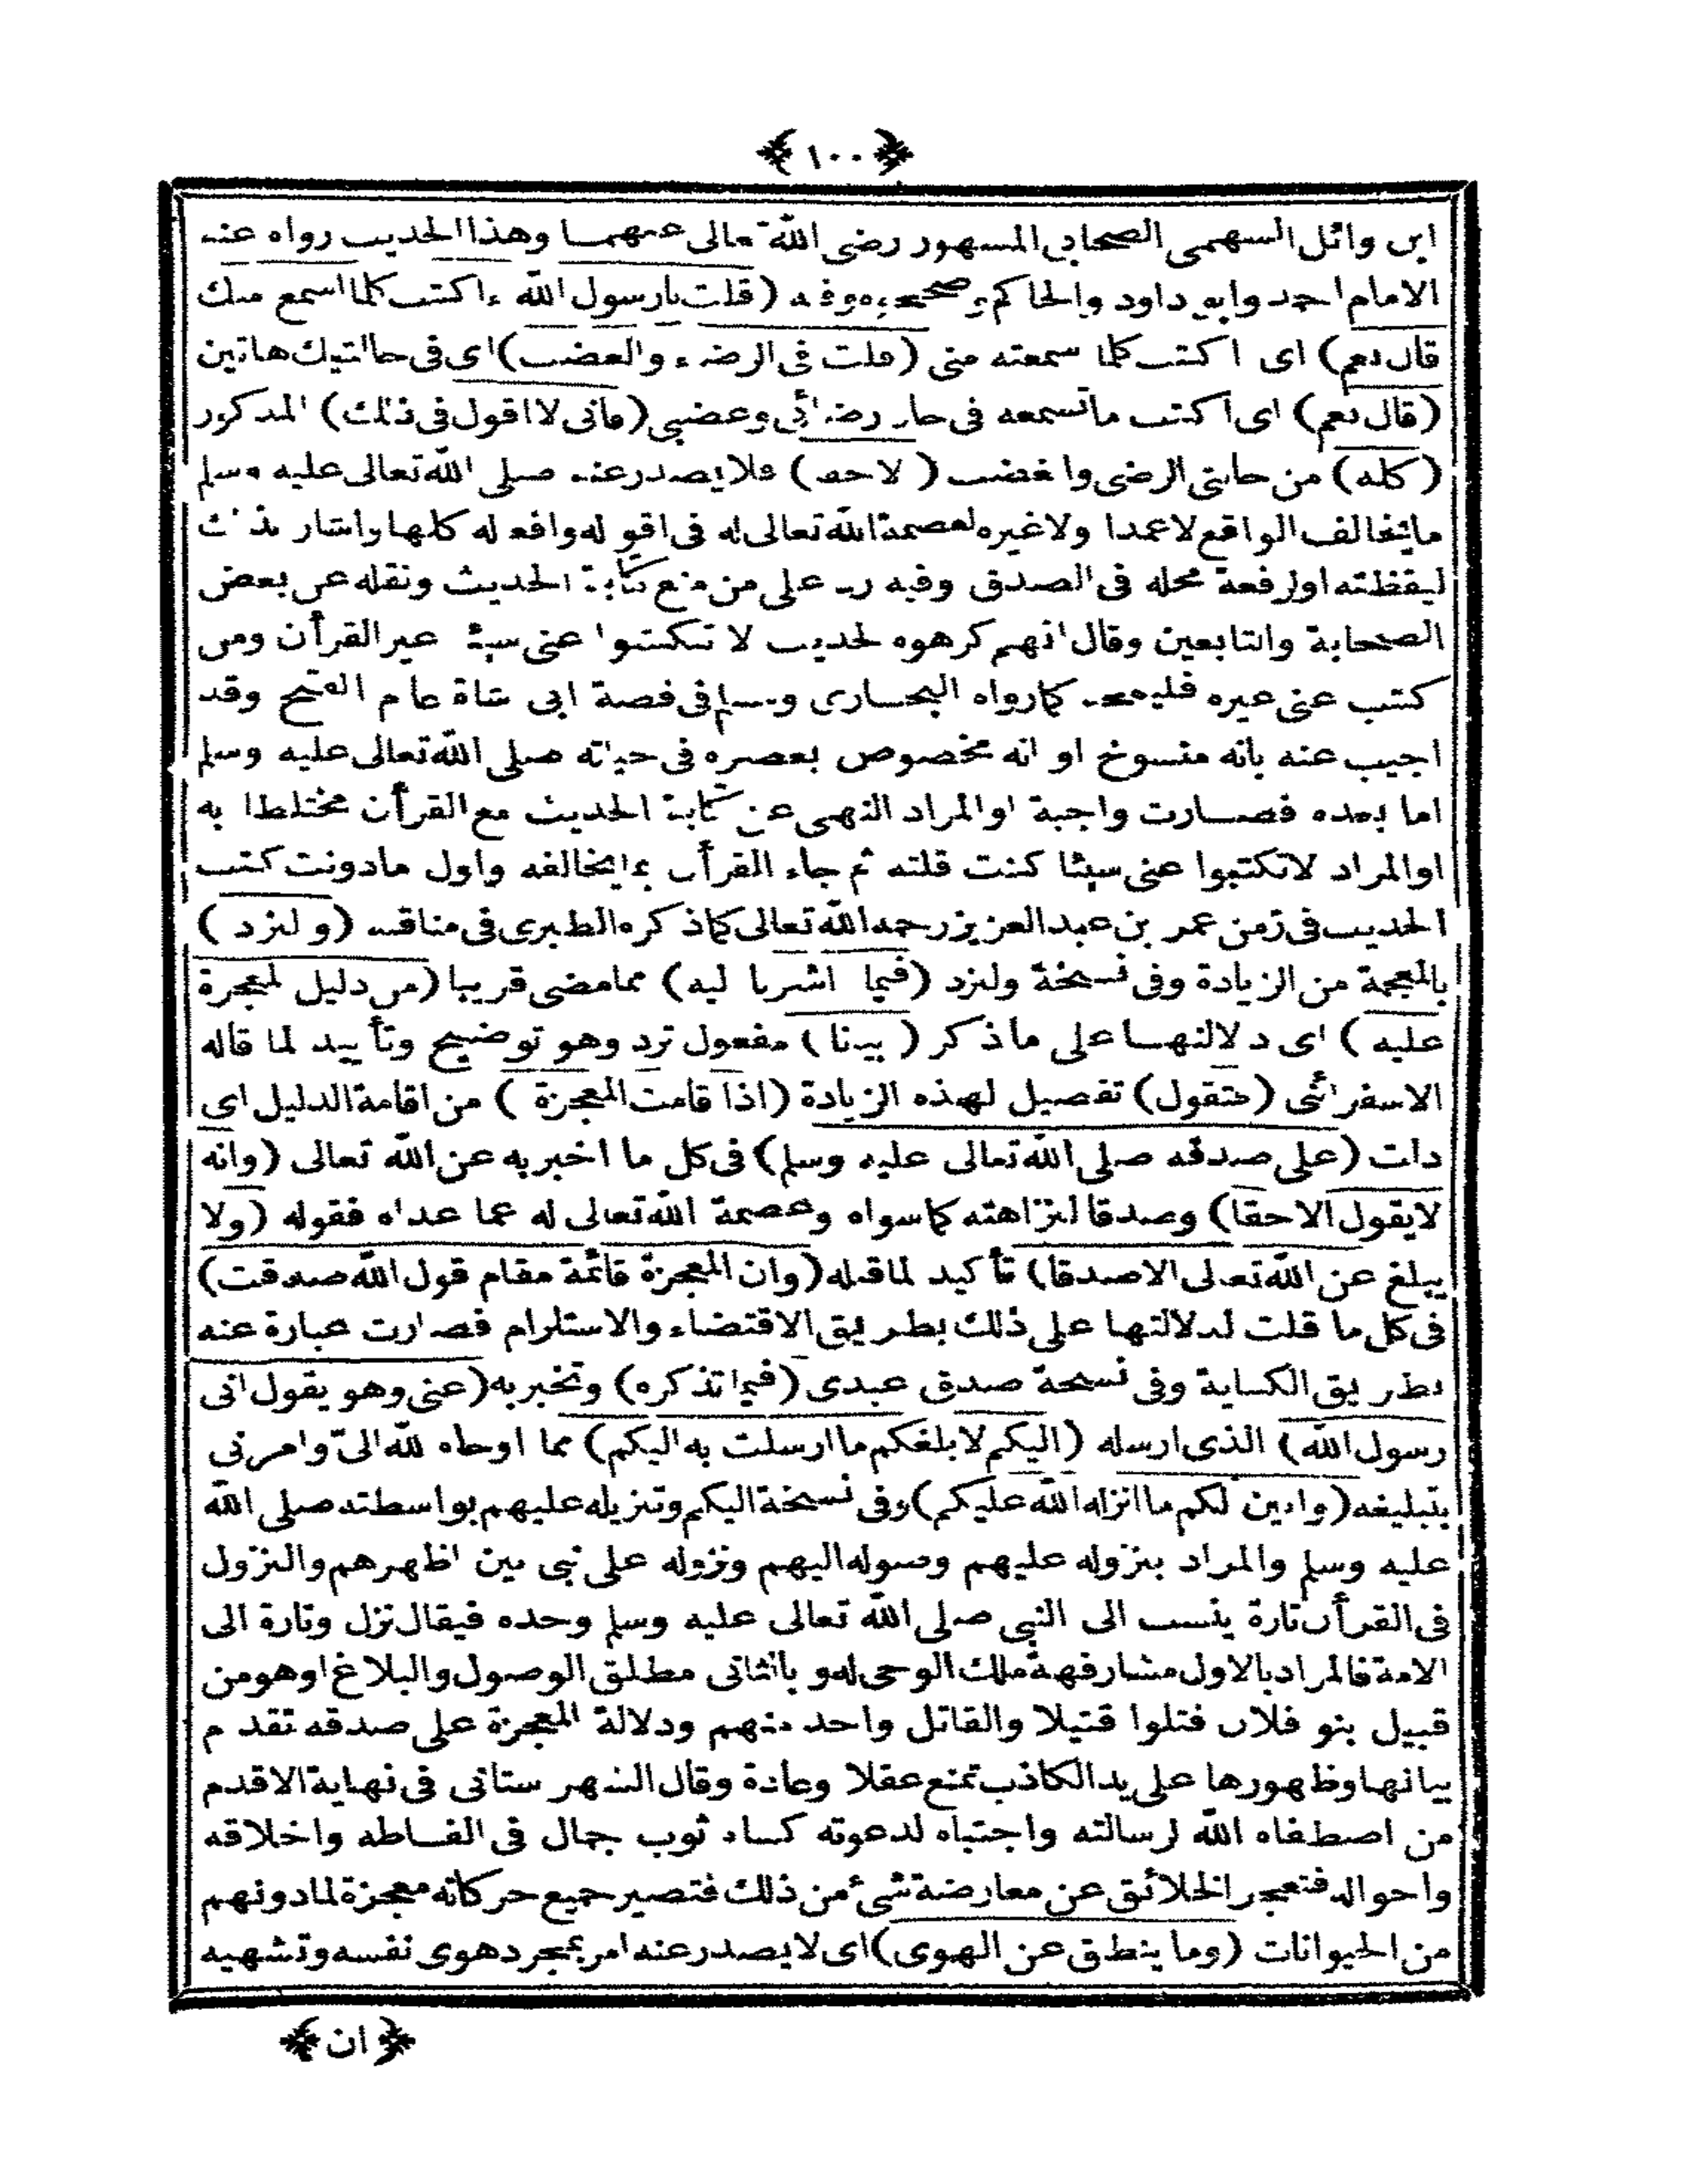 ﴿١٠٠﴾
ابن وائل السهمى الصحابى المشهور رضى الله تعالى عنهما وهذا الحديث رواه عنه
الامام احمد وابو داود والحاكم وصححوه وفيه (قلت يارسول الله ءاكتب كلما اسمع منك
قال نعم) اى اكتب كلما سمعته منى (قلت فى الرضاء والغضب) اى فى حالتيك هاتين
(قال نعم) اى اكتب ماتسمعه فى حال رضائى وغضبى (فانى لا اقول فى ذلك) المذكور
(كله) من حالتى الرضى والغضب (الاحقا) فلا يصدر عنه صلى الله تعالى عليه وسلم
مايخالف الواقع لاعمدا ولاغيره لعصمة الله تعالى له فى اقواله وافعاله كلها واشار بذلك
ليقظته اولرفعة محله فى الصدق وفيه رد على من منع كتابة الحديث ونقله عن بعض
الصحابة والتابعين وقال انهم كرهوه لحديث لا تكتبوا عنى شيئا غير القرأن ومن
كتب عنى غيره فليمحه كمارواه البخارى ومسلم فى قصة ابى شاة عام الفتح وقد
اجيب عنه بانه منسوخ او انه مخصوص بعصره فى حياته صلى الله تعالى عليه وسلم
اما بعده فصارت واجبة اوالمراد النهى عن كتابة الحديث مع القرأن مختلطا به
اوالمراد لاتكتبوا عنى شيئا كنت قلته ثم جاء القرأن بمايخالفه واول مادونت كتب
الحديث فى زمن عمر بن عبد العزيز رحمه الله تعالى كماذكره الطبرى فى مناقبه (ولنزد)
بالمعجمة من الزيادة وفى نسخة ولنزد (فيما اشرنا اليه) ممامضى قريبا (من دليل المعجزة
عليه) اى دلالتها على ماذكر (بيانا) مفعول نزد وهو توضيح وتأييد لما قاله
الاسفرائنى (فنقول) تفصيل لهذه الزيادة (اذا قامت المعجزة) من اقامة الدليل اى
دلت (على صدقه صلى الله تعالى عليه وسلم) فى كل ما اخبر به عن الله تعالى (وانه
لايقول الاحقا) وصدقا لنزاهته كماسواه وعصمة الله تعالى له عما عداه فقوله (ولا
يبلغ عن الله تعالى الاصدقا) تأكيد لماقبله (وان المعجزة قائمة مقام قول الله صدقت)
فى كل ما قلت لدلالتها على ذلك بطريق الاقتضاء والاستلزام فصارت عبارة عنه
بطريق الكناية وفى نسخة صدق عبدى (فيما تذكره) وتخبر به (عنى وهو يقول انى
رسول الله) الذى ارسله (اليكم لابلغكم ما ارسلت به اليكم) مما اوحاه الله الىّ وامرنى
بتبليغه (وابين لكم ما انزله الله عليكم) وفى نسخة اليكم وتنزيله عليهم بواسطته صلى الله
عليه وسلم والمراد بنزوله عليهم وصوله اليهم ونزوله على نبى بين اظهرهم والنزول
فى القرأن تارة ينسب الى النبى صلى الله تعالى عليه وسلم وحده فيقال نزل وتارة الى
الامة فالمراد بالاول مشارفهة ملك الوحى له وبالثانى مطلق الوصول والبلاغ اوهومن
قبيل بنو فلان قتلوا قتيلا والقاتل واحد منهم ودلالة المعجزة على صدقه تقدم
بيانها وظهورها على يد الكاذب تمنع عقلا وعادة وقال الشهرستانى فى نهاية الاقدم
من اصطفاه الله لرسالته واجتباه لدعوته كساه ثوب جمال فى الفاظه واخلاقه
واحواله فتعجز الخلائق عن معارضة شىء من ذلك فتصير جميع حركاته معجزة لمادونهم
من الحيوانات (وما ينطق عن الهوى) اى لايصدر عنه امر بمجرد هوى نفسه وتشهيه
﴿ان﴾